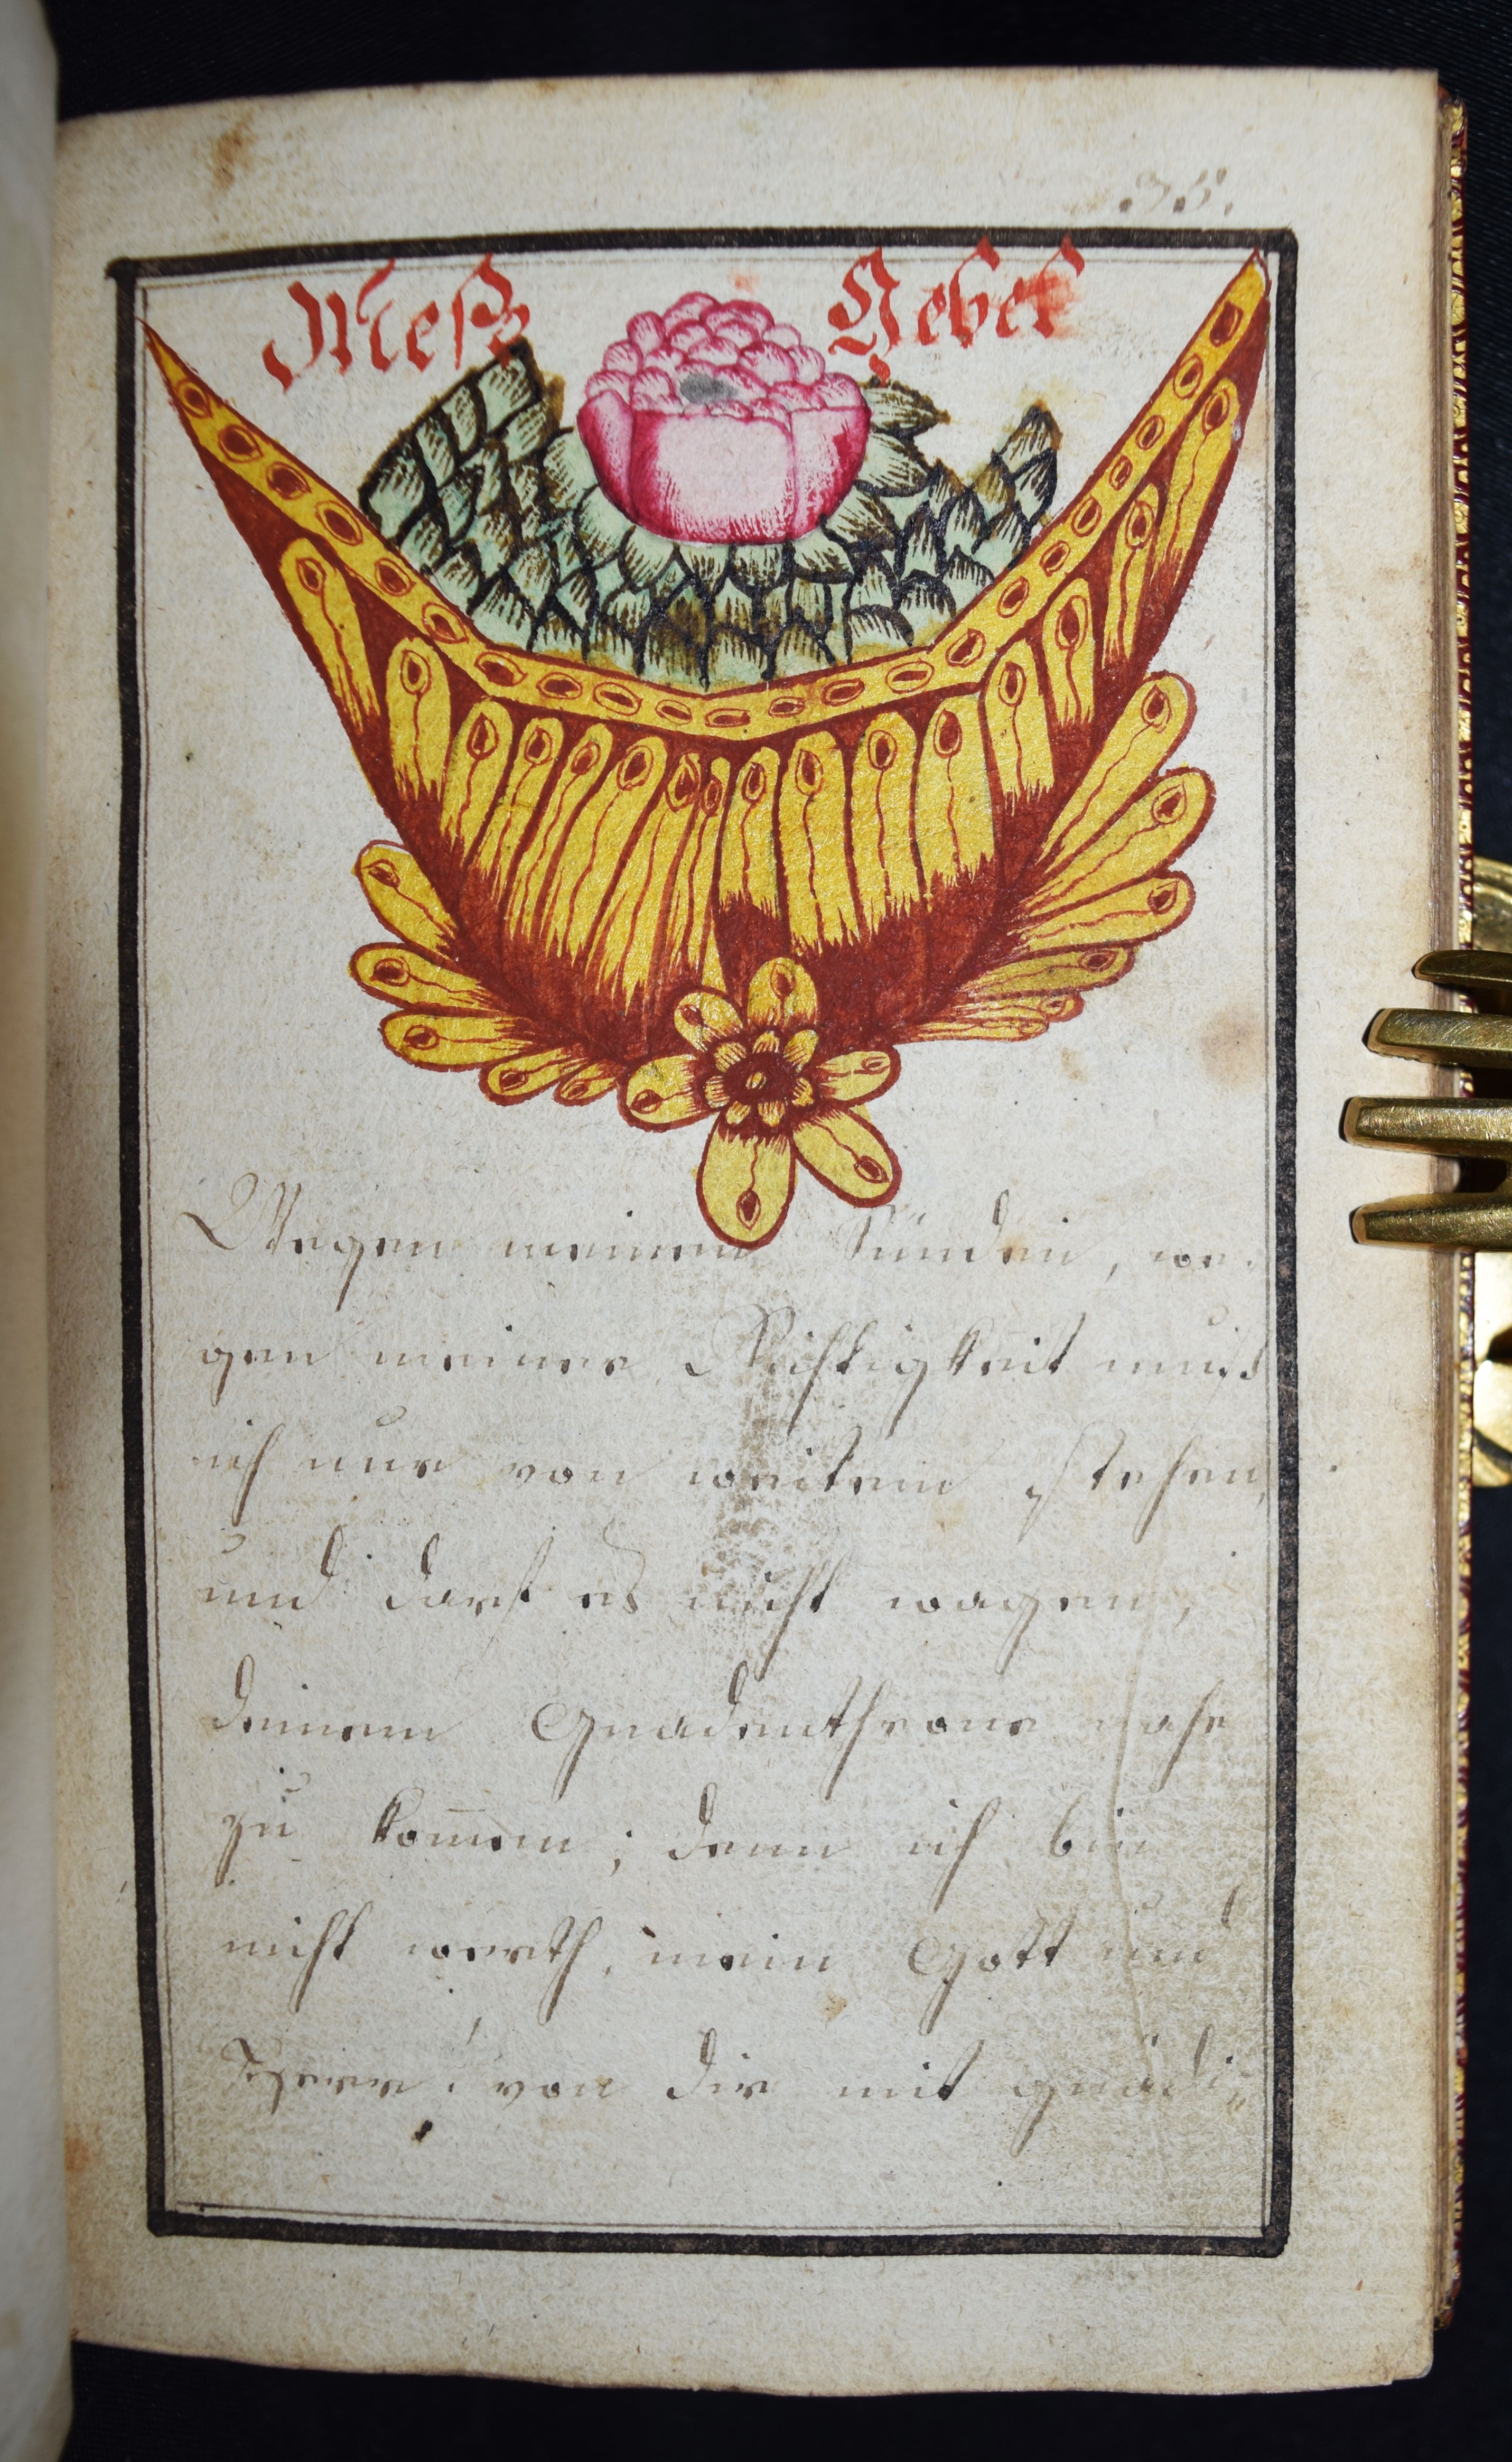 35.
Meß Gebet
Wegen meinen Sünden, we-
gen meiner Nichtigkeit muß
ich nur von weitem stehen,
und darf es nicht wagen,
deinem Gnadenthrone nahe
zu kom̄en; denn ich bin
nicht werth, mein Gott und
Herr! von dir mit gnädi„